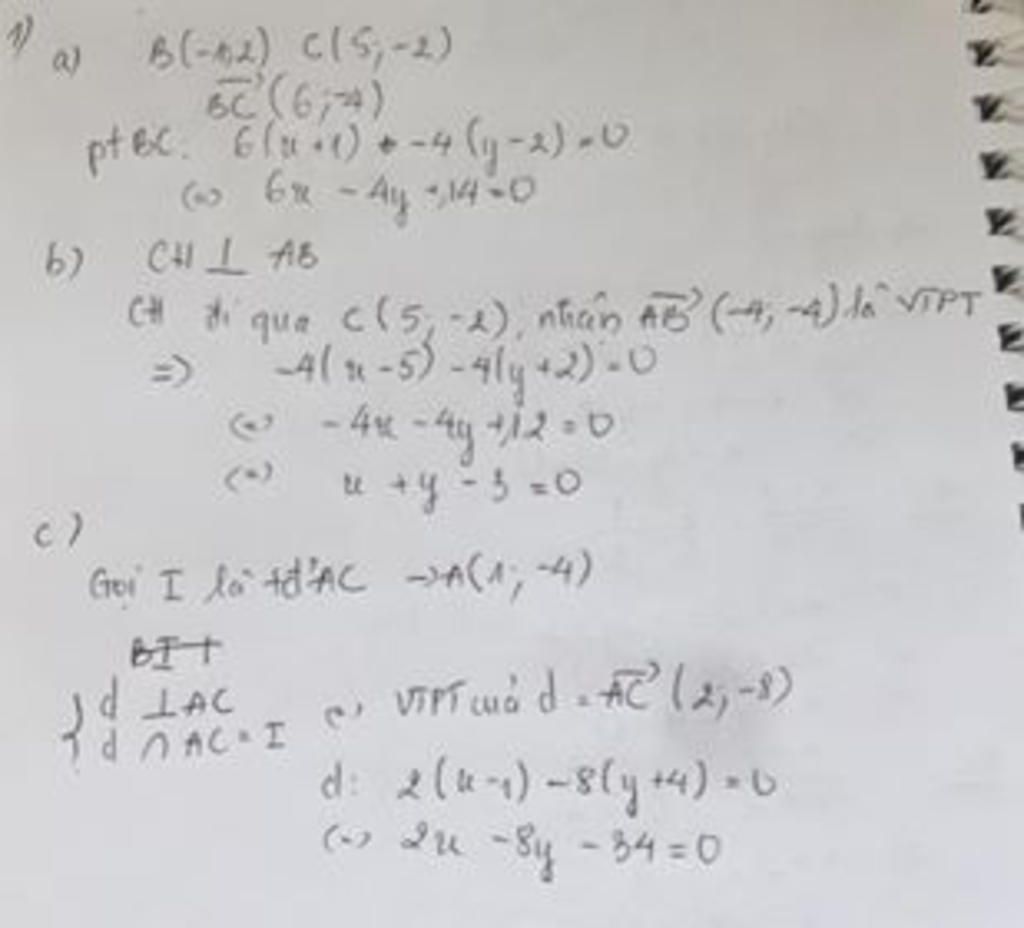 1)
a) B(-1,2) C(5,-2)
BC→(6;-4)
pt BC: 6(x+1) + -4(y-2)=0
(=) 6x - 4y +14=0
b) CH ⊥ AB
CH đi qua C(5,-2), nhân AB→(-4;-4) là VTPT
=> -4(x-5) -4(y+2)=0
(=) -4x -4y +12=0
(=) x +y -3 =0
c)
Gọi I là tđ AC →A(1;-4)
BI ⊥
d ⊥AC (=) VTPT của d = AC→(2;-8)
d ∩ AC = I
d: 2(x-1) -8(y+4)=0
(=) 2x -8y -34=0